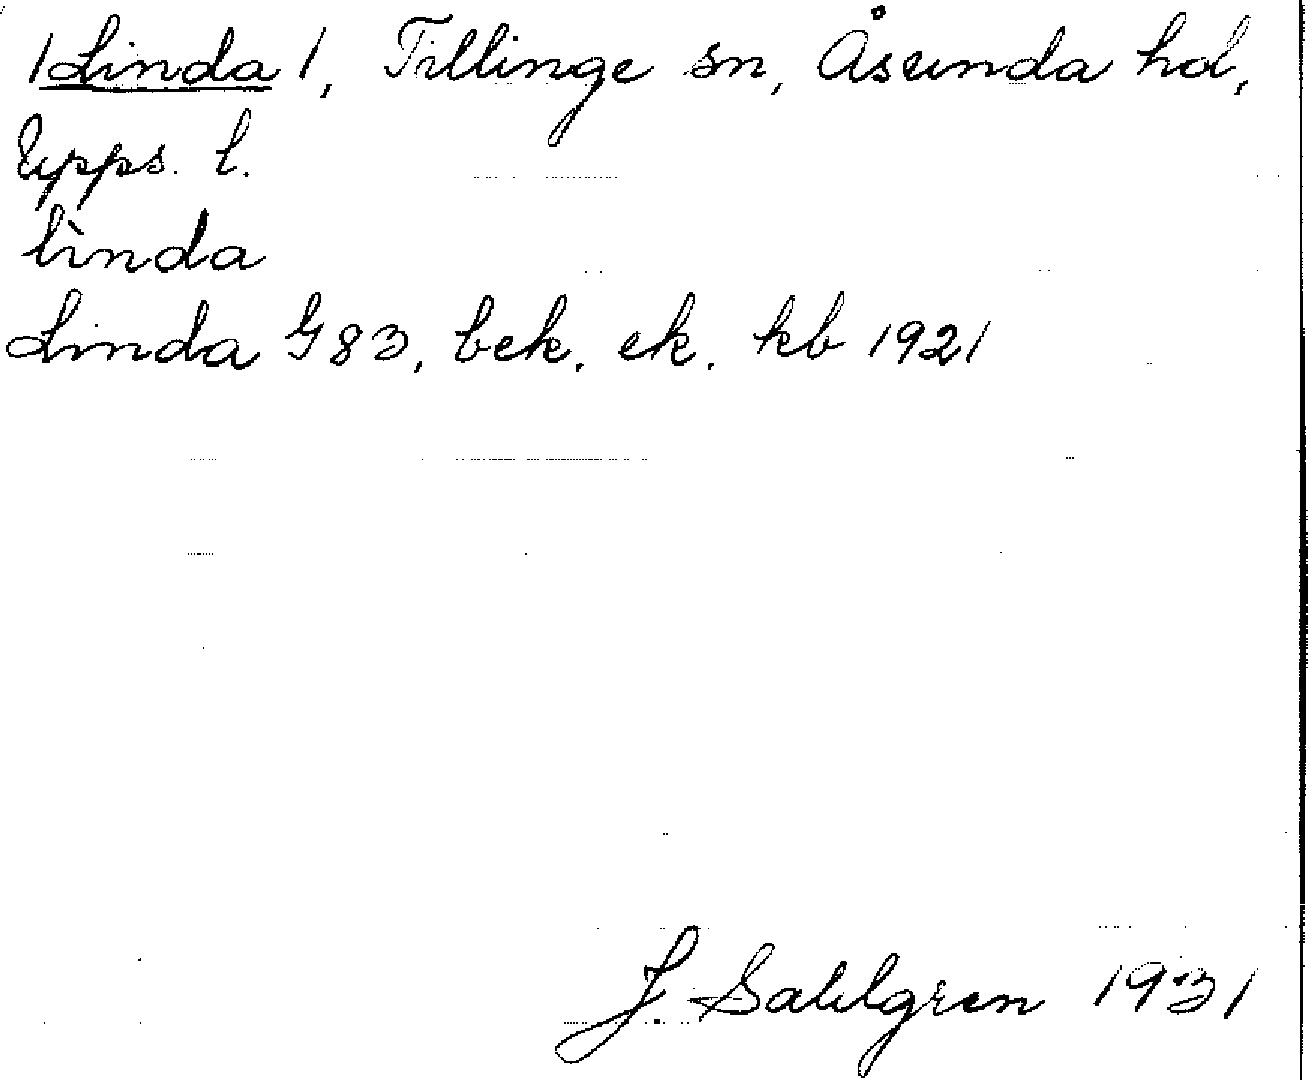 /Linda/, Tillinge sn, Åsunda hd,
Upps. l.
lìnda
Linda G83, bek. ek. kb 1921
J. Sahlgren 1931